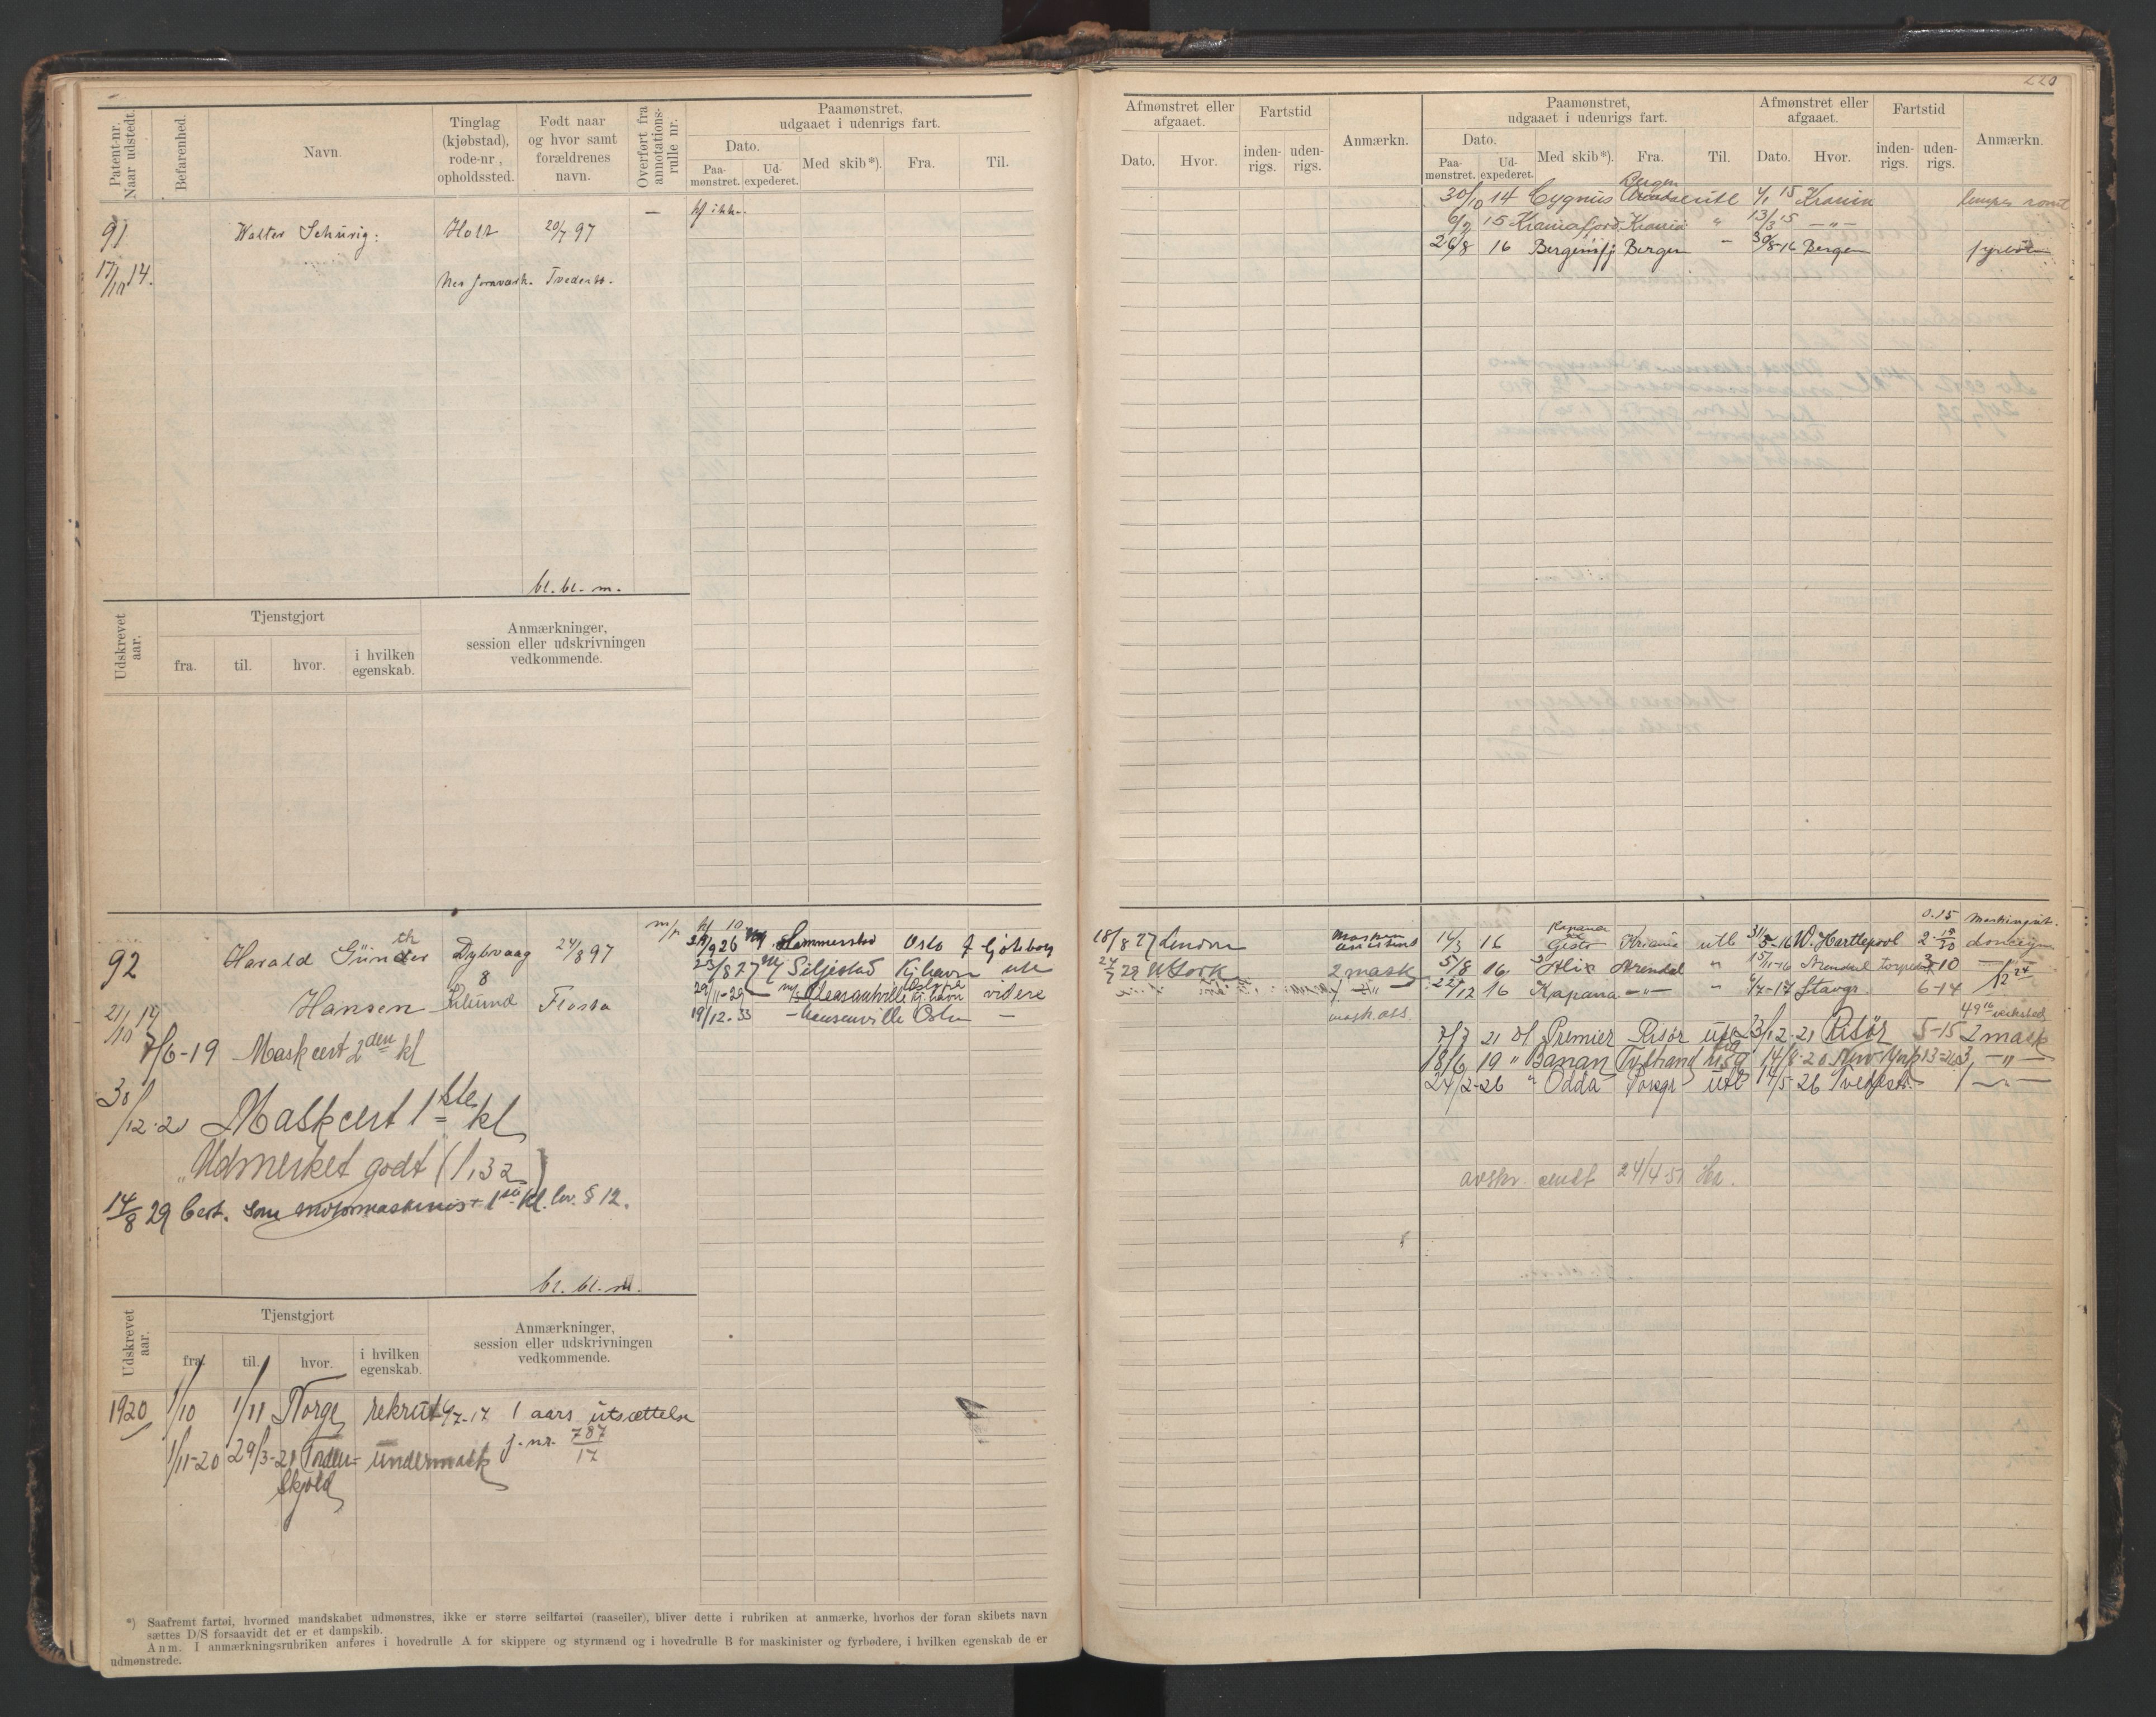 220
Patent-nr. Naar udstedt.
Befarenhed.
Navn.
Tinglag (kjøbstad), rode-nr., opholdssted.
Født naar og hvor samt forældrenes navn.
Overført fra annotations-rulle nr.
Paamønstret, udgaaet i udenrigs fart.
Dato.
Paa-mønstret.
Ud-expederet.
Med skib*).
Fra.
Til.
Afmønstret eller afgaaet.
Dato.
Hvor.
Fartstid
inden-rigs.
uden-rigs.
Anmærkn.
Paamønstret, udgaaet i udenrigs fart.
Dato.
Paa-mønstret.
Ud-expederet.
Med skib*).
Fra.
Til.
Afmønstret eller afgaaet.
Dato.
Hvor.
Fartstid
inden-rigs.
uden-rigs.
Anmærkn.
91
17/10 14.
Walter Schurig.
Holt
20/7 97
—
Tvedestr.
bl. bl. m.
30/10 14 Cygnus Bergen utl 4/1 15 Krania
6/2 15 Kraniafjord Krania " 13/3 15 —"—
26/8 16 Bergensfj Bergen - 30/8-16 Bergen
Udskrevet aar.
Tjenstgjort
fra.
til.
hvor.
i hvilken egenskab.
Anmærkninger, session eller udskrivningen vedkommende.
92
21/10 14
Harald Günther
Hansen
Dybvaag
8
24/8 97
Flosta
7/6-19 Maskcert 2den kl
30/12-20 Maskcert 1ste kl
"Udmerket godt" (1,32)
14/8 29 Cert. som motormaskinist 1ste kl. lov. § 12.
bl. bl. m.
24/9 26 Hammerstad Oslo Gjøteborg
23/8 27 Siljestad Kjhavn utl
29/11-29 Pleasantville Kj.havn videre
19/12-33 Oslo —
18/8 27 London
24/7 29 N York 2 mask
mask.ass.
14/3 16 Krania utl 31/5-16 W. Hartlepool
5/8 16 Alix Arendal " 15/11-16 Arendal 3-10
22/12 16 Kapana —"— " 6/7-17 Stavgr. 6-14
7/7 21 Premier Risør utl 23/12-21 Risør 5-15 2 mask
18/6 19 " Banan Tvestrand 14/8-20 New York 13-26 3 —"—
24/2-26 " Odda Porsgr utl 14/5-26 Tvedestr. 1 —"—
avskr. sendt 24/4 51 Ha.
Udskrevet aar.
Tjenstgjort
fra.
til.
hvor.
i hvilken egenskab.
Anmærkninger, session eller udskrivningen vedkommende.
1920 1/10 1/11 Norge rekrut 9/7-17 1 aars utsættelse
j. nr. 787/17
1/11-20 29/3-21 Tordenskjold undermask
*) Saafremt fartøi, hvormed mandskabet udmønstres, ikke er større seilfartøi (raaseiler), bliver dette i rubriken at anmærke, hvorhos der foran skibets navn
sættes D/S forsaavidt det er et dampskib.
Anm. I anmærkningsrubriken anføres i hovedrulle A for skippere og styrmænd og i hovedrulle B for maskinister og fyrbødere, i hvilken egenskab de er
udmønstrede.